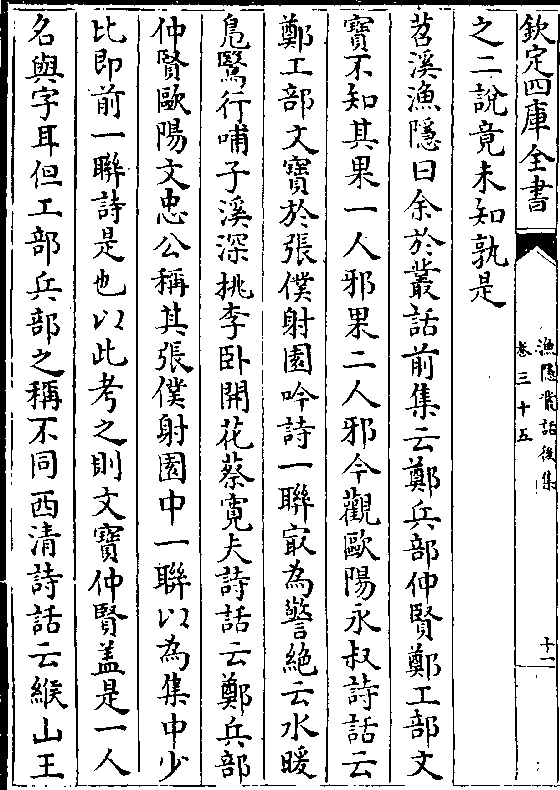 欽定四庫全書
漁隱叢話後集
卷三十五
十一
之二說竟未知孰是
苕溪漁隱曰余於叢話前集云鄭兵部仲賢鄭工部文
寶不知其果一人邪果二人邪今觀歐陽永叔詩話云
鄭工部文寶於張僕射園吟詩一聯㝡為警絕云水暖
鳧鷖行哺子溪深桃李卧開花蔡寛夫詩話云鄭兵部
仲賢歐陽文忠公稱其張僕射園中一聯以為集中少
比即前一聯詩是也以此考之則文寶仲賢盖是一人
名與字耳但工部兵部之稱不同西清詩話云緱山王